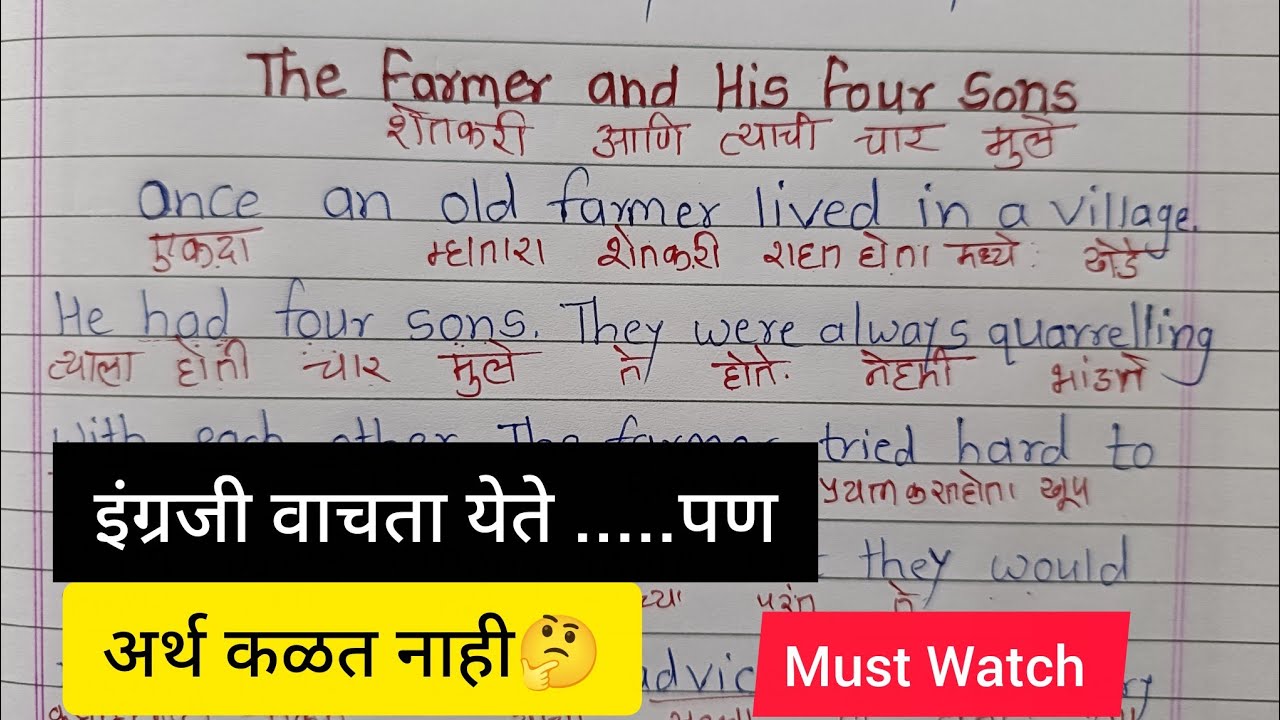 The Farmer and His Four Sons
शेतकरी आणि त्याची चार मुले
Once an old farmer lived in a village.
एकदा म्हातारा शेतकरी राहत होता मध्ये खेडे
He had four sons. They were always quarrelling
त्याला होती चार मुले ते होते. नेहमी भांडत
with each other. The farmer tried hard to
प्रयत्न करत होता खूप
इंग्रजी वाचता येते .....पण
they would
परंतु ते
अर्थ कळत नाही🤔
Must Watch
advic